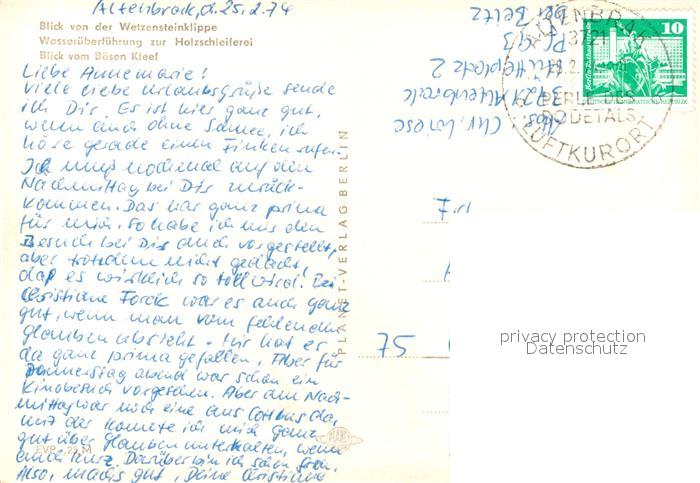 Altenbrak, d. 25.2.74
Blick von der Wetzensteinklippe
Wasserüberführung zur Holzschleiferei
Blick vom Bösen Kleef
Liebe Annemarie!
Viele liebe Urlaubsgrüße sende
ich Dir. Es ist hier ganz gut,
wenn auch ohne Schnee, ich
höre gerade einen Finken rufen.
Ich muß nochmal auf den
Nachmittag bei Dir zurück-
kommen. Das war ganz prima
für mich. So habe ich mir den
Besuch bei Dir auch vorgestellt,
aber trotzdem nicht gedacht,
daß es wirklich so toll wird. Bei
Christiane war es auch ganz
gut, wenn man vom fehlenden
Glauben absieht. Mir hat es
da ganz prima gefallen. Aber für
Donnerstag abend war schon ein
Kinobesuch vorgesehen. Aber am Nach-
mittag war noch eine aus Cottbus da,
mit der konnte ich mich ganz
gut über Glauben unterhalten, wenn
auch kurz. Darüber bin ich schon froh.
Also, machs gut, Deine Christiane
EVP -,25 M
PLANET
PLANET-VERLAG BERLIN
Abs. Chr. Wiese
3721 Altenbrak
Hüttenplatz 2
ALTENBRAK
3721
PERLE DES
BODETALS
LUFTKURORT
10
75
privacy protection
Datenschutz